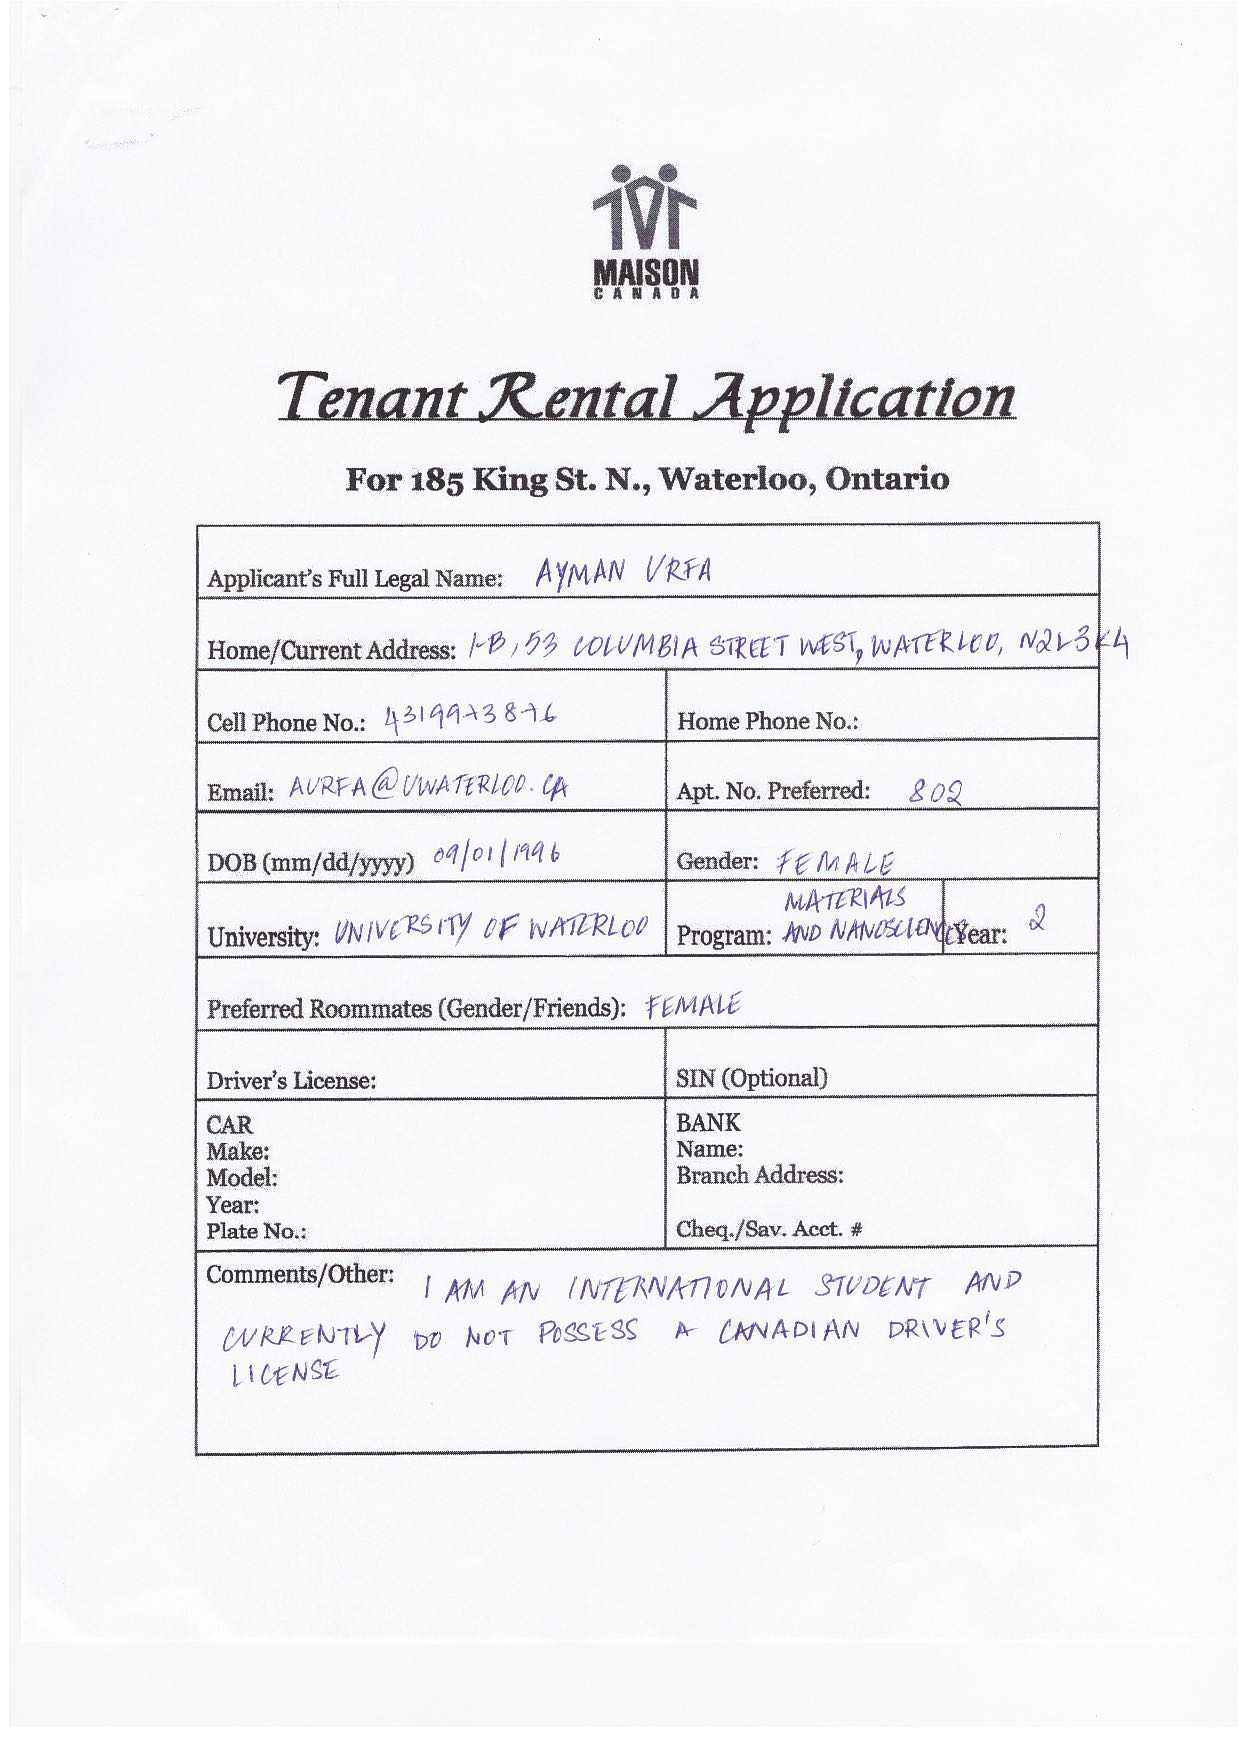 MAISON
CANADA
Tenant Rental Application
For 185 King St. N., Waterloo, Ontario
Applicant's Full Legal Name: AYMAN URFA
Home/Current Address: 1-B, 53 COLUMBIA STREET WEST, WATERLOO, N2L3K4
Cell Phone No.: 4319973876 Home Phone No.:
Email: AURFA@UWATERLOO.CA Apt. No. Preferred: 802
DOB (mm/dd/yyyy) 09/01/1996 Gender: FEMALE
University: UNIVERSITY OF WATERLOO Program: MATERIALS
AND NANOSCIENCE Year: 2
Preferred Roommates (Gender/Friends): FEMALE
Driver's License: SIN (Optional)
CAR
Make:
Model:
Year:
Plate No.:
BANK
Name:
Branch Address:
Cheq./Sav. Acct. #
Comments/Other: I AM AN INTERNATIONAL STUDENT AND
CURRENTLY DO NOT POSSESS A CANADIAN DRIVER'S
LICENSE